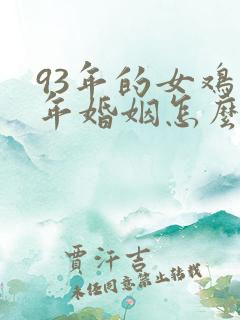 93年的女鸡
年婚姻怎麼
賈汗吉
未经同意禁止转载